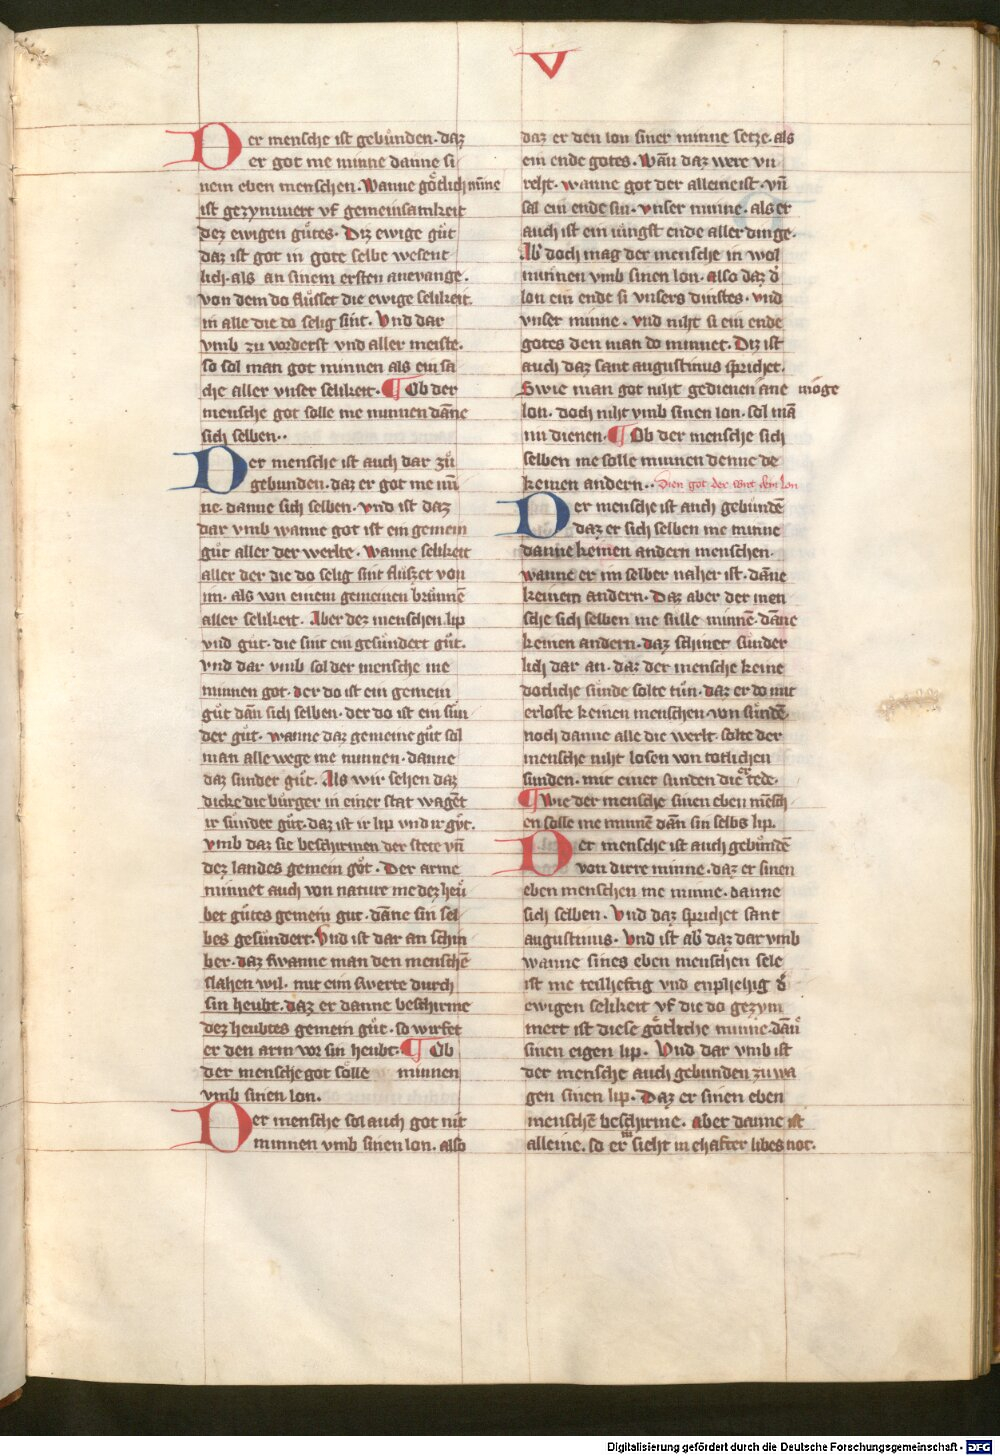 V
Der mensche ist gebůnden. daz
er got me minne danne si
nem eben menschen. Wanne gőtlich mīne
ist gezymmert vf gemeinsamkeit
dez ewigen gůtes. Diz ewige gůt
daz ist got in gote selbe wesent
lich. als an sinem ersten anevange.
von dem do flůsset die ewige selikeit.
in alle die do selig sint. Vnd dar
vmb zu vorderst vnd aller meiste.
so sol man got minnen als ein sa
che aller vnser selikeit. ¶ Ob der
mensche got solle me minnen dāne
sich selben..
Der mensche ist auch dar zů
gebunden. daz er got me mī
ne. danne sich selben. vnd ist daz
dar vmb wanne got ist ein gemein
gůt aller der werlte. Wanne selikeit
aller der die do selig sint flůszet von
im. als von einem gemeinen brůnnē
aller selikeit. Aber dez menschen lip
vnd gůt. die sint ein gesůndert gůt.
vnd dar vmb sol der mensche me
minnen got. der do ist ein gemein
gůt dān sich selben. der do ist ein sůn
der gůt. wanne daz gemeine gůt sol
man alle wege me minnen. danne
daz sunder gůt. Als wir sehen daz
dicke die bůrger in einer stat wagēt
ir sůnder gůt. daz ist ir lip vnd ir gůt.
vmb daz sie beschirmen der stete vn̄
dez landes gemein gőt. Der arme
minnet auch von nature me dez heů
bet gůtes gemein gut. dāne sin sel
bes gesůndert. Vnd ist dar an schin
ber. daz swanne man den menschē
slahen wil. mit eim swerte durch
sin heubt. daz er danne beschirme
dez heubtes gemein gůt. so wirfet
er den arm vor sin heubt. ¶ Ob
der mensche got sőlle minnen
vmb sinen lon.
Der mensche sol auch got nit
minnen vmb sinen lon. also
daz er den lon siner minne setze. als
ein ende gotes. Wān daz were vn
reht. wanne got der alleine ist. vn̄
sal ein ende sin. vnser minne. als er
auch ist ein iůngst ende aller dinge.
Ab doch mag der mensche in wol
minnen vmb sinen lon. also daz d
lon ein ende si vnsers dinstes. vnd
vnser minne. vnd niht si ein ende
gotes den man do minnet. Diz ist
auch daz sant augustinus sprichet.
Swie man got niht gedienen ane mőge
lon. doch niht vmb sinen lon. sol mā
im dienen. ¶ Ob der mensche sich
selben me solle minnen denne de
keinen andern.. Dien got der wirt dein lon
Der mensche ist auch gebůndē
daz er sich selben me minne
danne keinen andern menschen.
wanne er im selber naher ist. dāne
keinem andern. Daz aber der men
sche sich selben me sůlle minnē. dāne
keinen andern. daz schinet sůnder
lich dar an. daz der mensche keine
dotliche sůnde solte tůn. daz er do mit
erloste keinen menschen von sůndē.
noch danne alle die werlt. solte der
mensche niht losen von totlichen
sunden. mit einer sunden die er tede.
¶ Wie der mensche sinen eben mēsch
en solle me minnē dān sin selbs lip.
Der mensche ist auch gebůndē
von dirre minne. daz er sinen
eben menschen me minne. danne
sich selben. Vnd daz sprichet sant
augustinus. Vnd ist ab daz dar vmb
wanne sines eben menschen sele
ist me teilheftig vnd enpfehig d
ewigen selikeit vf die do gezym
mert ist diese gőtliche minne. dān
sinen eigen lip. Vnd dar vmb ist
der mensche auch gebunden zu wa
gen sinen lip. Daz er sinen eben
menschē beschirme. aber danne ist
alleine. so er in sieht in ehafter libes not.
Digitalisierung gefördert durch die Deutsche Forschungsgemeinschaft - DFG